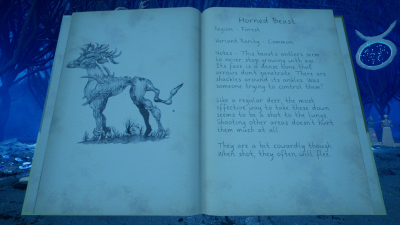 Horned Beast
Region - Forest
Variant Rarity - Common
Notes - This beast's antlers seem
to never stop growing with age.
Its face is a dense bone that
arrows don't penetrate. There are
shackles around its ankles. Was
someone trying to control them?
Like a regular deer, the most
effective way to take these down
seems to be a shot to the lungs.
Shooting other areas doesn't hurt
them much at all.
They are a bit cowardly though.
When shot, they often will flee.